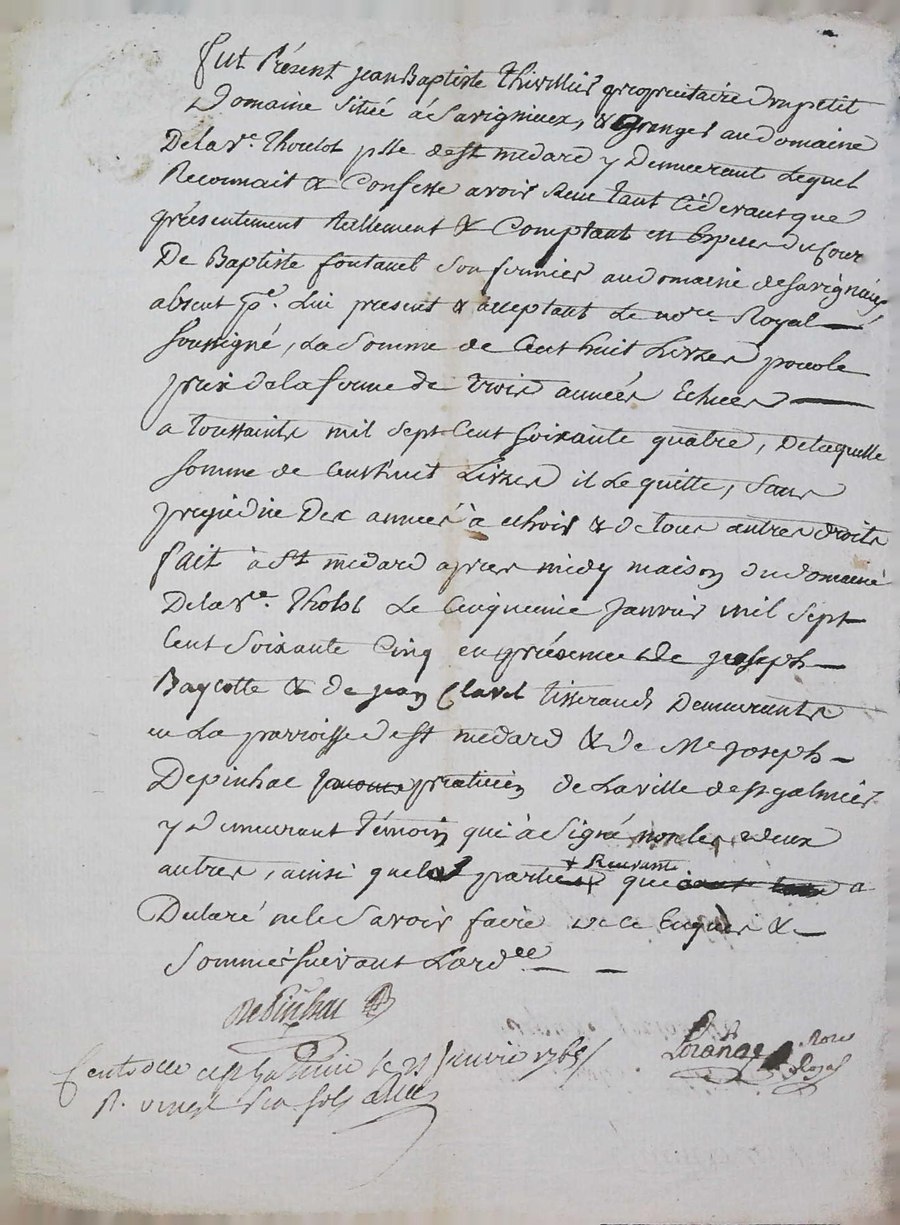 fut Présent Jean Baptiste Thivillier proprietaire d'un petit
Domaine Situé à Savignieux, & Granger au domaine
De la ve. Thoulot psse de st medard y Demeurant Lequel
Reconnait & Confesse avoir Reçu tant Cidevant que
présentement Reellement & Comptant en Especes du Cour
De Baptiste fontanel Son fermier au domaine de Savignieu
absent Lui present & acceptant Le nore. Royal
Soussigné, La Somme de Cent huit Livres pour le
prix de la ferme de trois années Echues
a toussaints mil Sept Cent Soixante quatre, De laquelle
Somme de Cent huit Livres il Le quitte, Sans
prejudice Des années à echoir & de tous autres droits
fait à St medard apres midy maison du domaine
De la ve. Tholot Le Cinquieme Janvier mil Sept
Cent Soixante Cinq en présence de Joseph
Baycotte & de Jean Clavel tisserands Demeurants
en La parroisse de st medard & de Me Joseph
Depinhac praticien de La ville de st galmier
y Demeurant témoin qui à Signé non les deux
autres, ainsi que les parties + Recevante que a
Declaré ne le Savoir faire de ce Enquis &
Sommés Suivant L'ordee
Depinhac
Lorange Nore
Royal
Controllé a st le 21 Janvier 1765
R. vingt Six sols